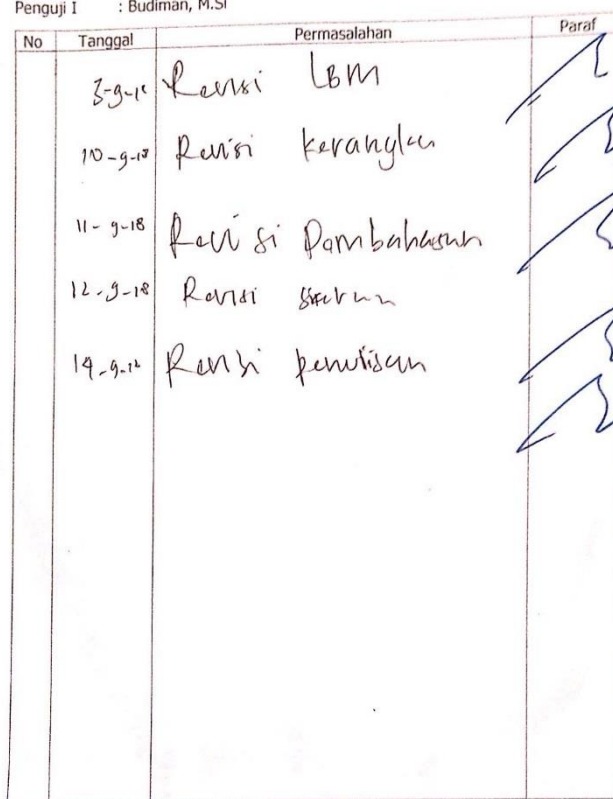 Penguji I : Budiman, M.Si
No Tanggal Permasalahan Paraf
3-9-18 Revisi LBM
10-9-18 Revisi kerangka
11-9-18 Revisi Pembahasan
12-9-18 Revisi
14-9-18 Revisi penulisan